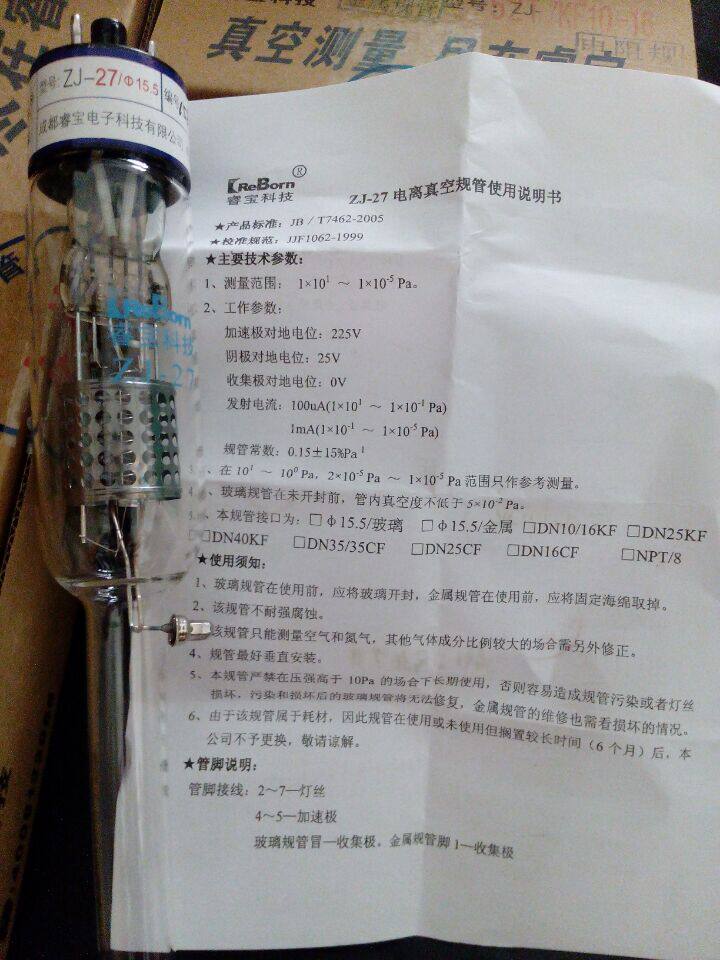 真空测量
ZJ
KF10-16
电阻规
型号: ZJ-27/Φ15.5 编号
成都睿宝电子科技有限公司
ReBorn
睿宝科技
ZJ-27
ReBorn®
睿宝科技
ZJ-27 电离真空规管使用说明书
★产品标准：JB／T7462-2005
★校准规范：JJF1062-1999
★主要技术参数：
1、测量范围： 1×10¹ ～ 1×10⁻⁵ Pa。
2、工作参数：
加速极对地电位：225V
阴极对地电位：25V
收集极对地电位：0V
发射电流：100uA(1×10¹ ～ 1×10⁻¹ Pa)
1mA(1×10⁻¹ ～ 1×10⁻⁵ Pa)
规管常数：0.15±15%Pa⁻¹
3、在 10¹ ～ 10⁰ Pa，2×10⁻⁵ Pa ～ 1×10⁻⁵ Pa 范围只作参考测量。
4、玻璃规管在未开封前，管内真空度不低于 5×10⁻² Pa。
5、本规管接口为：□ φ15.5/玻璃 □ φ15.5/金属 □DN10/16KF □DN25KF
□DN40KF □DN35/35CF □DN25CF □DN16CF □NPT/8
★使用须知：
1、玻璃规管在使用前，应将玻璃开封，金属规管在使用前，应将固定海绵取掉。
2、该规管不耐强腐蚀。
该规管只能测量空气和氮气，其他气体成分比例较大的场合需另外修正。
4、规管最好垂直安装。
5、本规管严禁在压强高于 10Pa 的场合下长期使用，否则容易造成规管污染或者灯丝
损坏，污染和损坏后的玻璃规管将无法修复，金属规管的维修也需看损坏的情况。
6、由于该规管属于耗材，因此规管在使用或未使用但搁置较长时间（6 个月）后，本
公司不予更换，敬请谅解。
★管脚说明：
管脚接线：2～7—灯丝
4～5—加速极
玻璃规管冒—收集极。金属规管脚 1—收集极